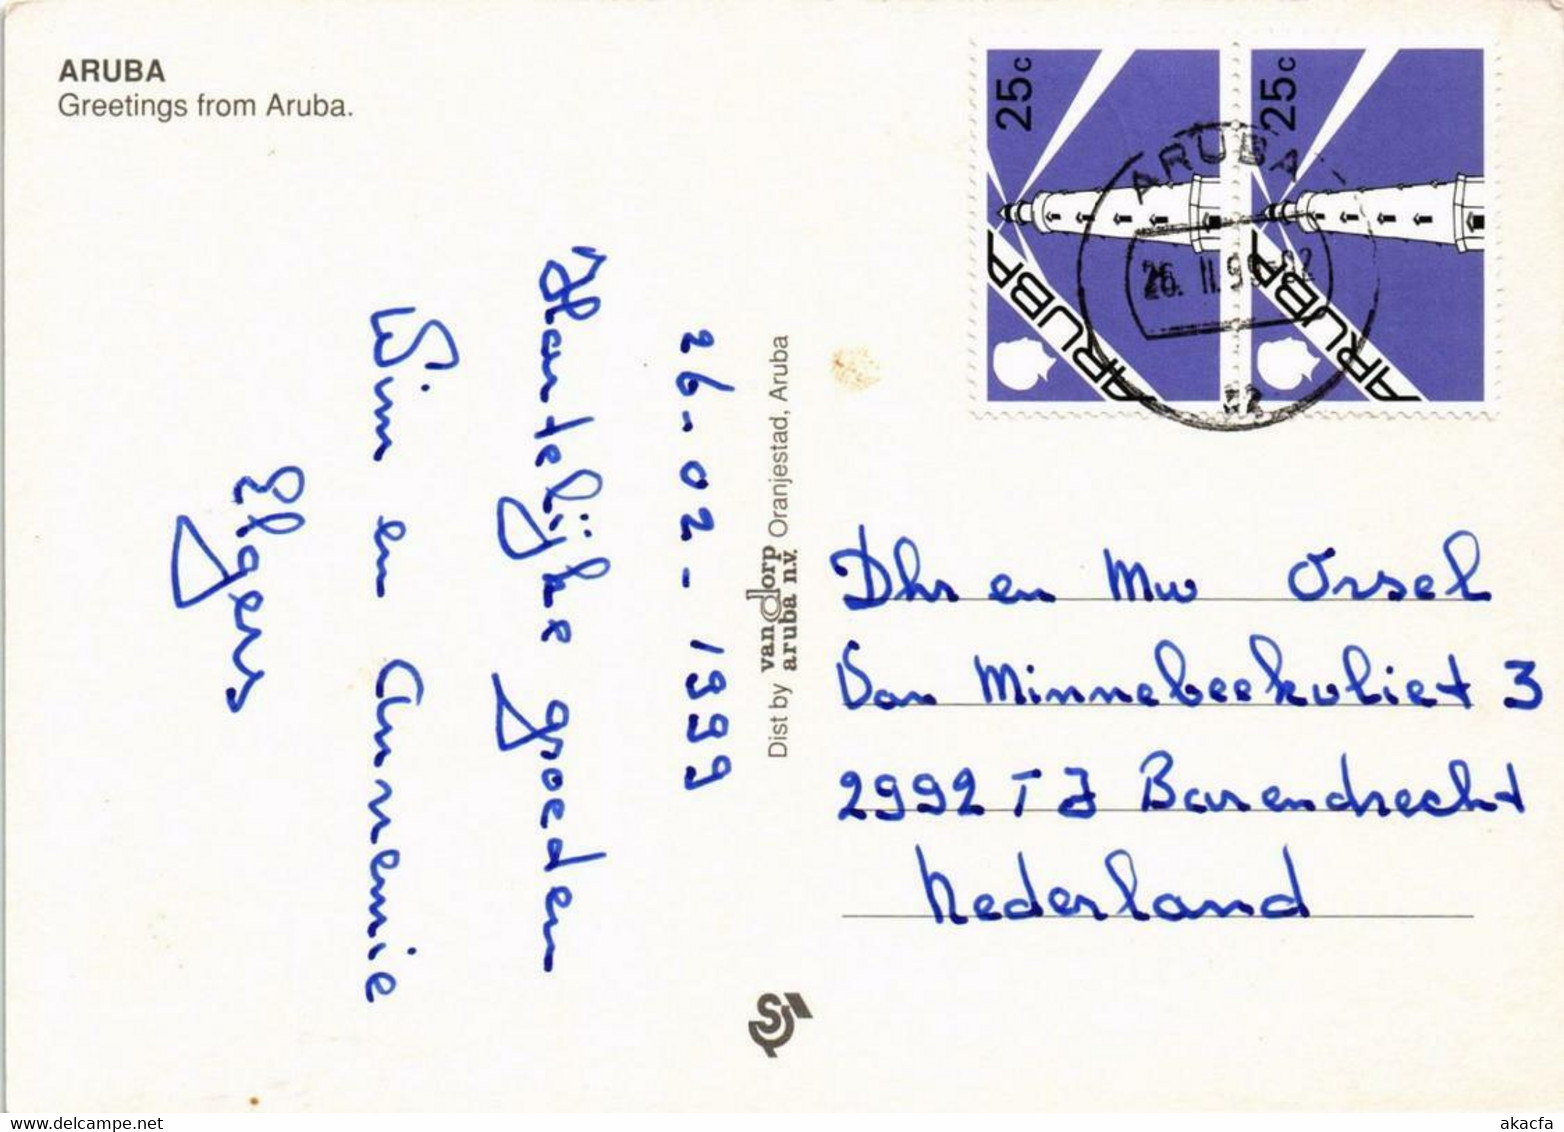 ARUBA
Greetings from Aruba.
26-02-1999
Hartelijke groeden
Wim en Annemie
Elgers
Dist by van dorp aruba n.v. Oranjestad, Aruba
25c
ARUBA
25c
ARUBA
ARUBA
26. II. 99-
22
Dhr en Mw Orsel
Van Minnebeekvliet 3
2992 TJ Barendrecht
Nederland
akacfa